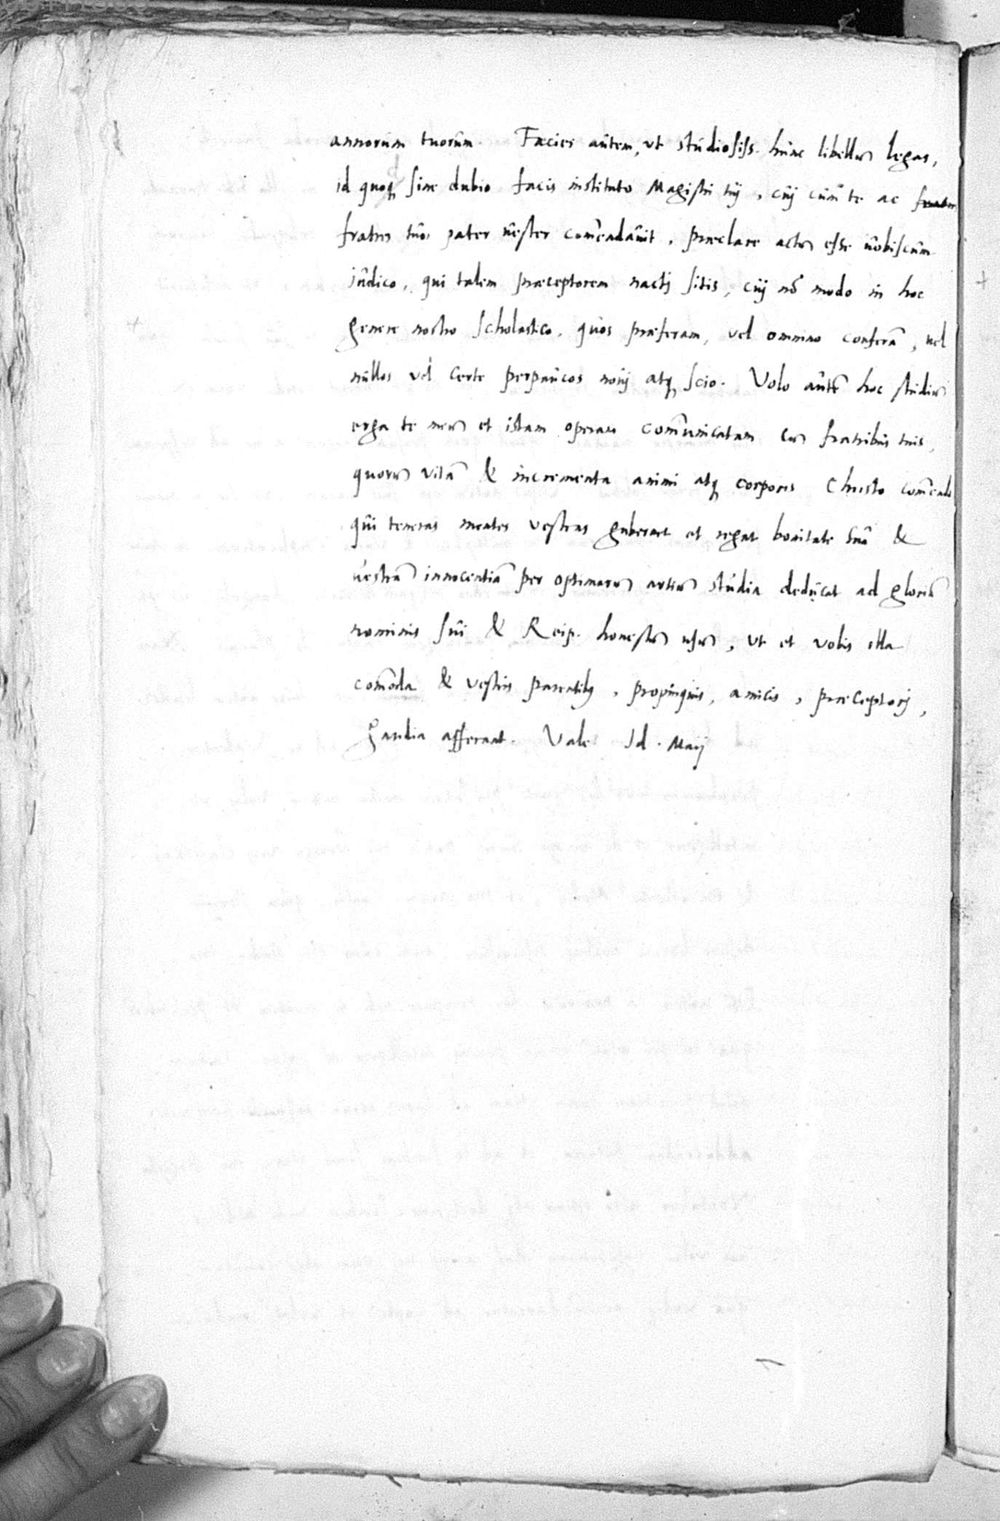 annorum tuorum. Facies autem, ut studiosiss. hunc libellum legas,
id quoq, sine dubio facis instituto Magistri tuj, cuj cum te ac
fratres tuos pater vester comendavit, præclare actum esse vobiscum
judico, qui talem præceptorem nactj sitis, cuj nō modo in hoc
genere nostro scholastico, quos præferam, vel omnino conferā, vel
nullos vel certe perpaucos novj atq, scio. Volo autē hoc studium
erga te meum et istam operam comunicatam cum fratribus tuis,
quorum vitā & incrementa animi atq, corporis Christo comendo
qui teneras mentes vestras gubernet et regat bonitate suā &
vestrā innocentiā per optimarum artium studia deducat ad gloriā
nominis sui & Reip. honestum usum, ut et vobis illa
comoda & vestris parentibus, propinquis, amicis, præceptorj,
gaudia afferant. Vale Id. Maij